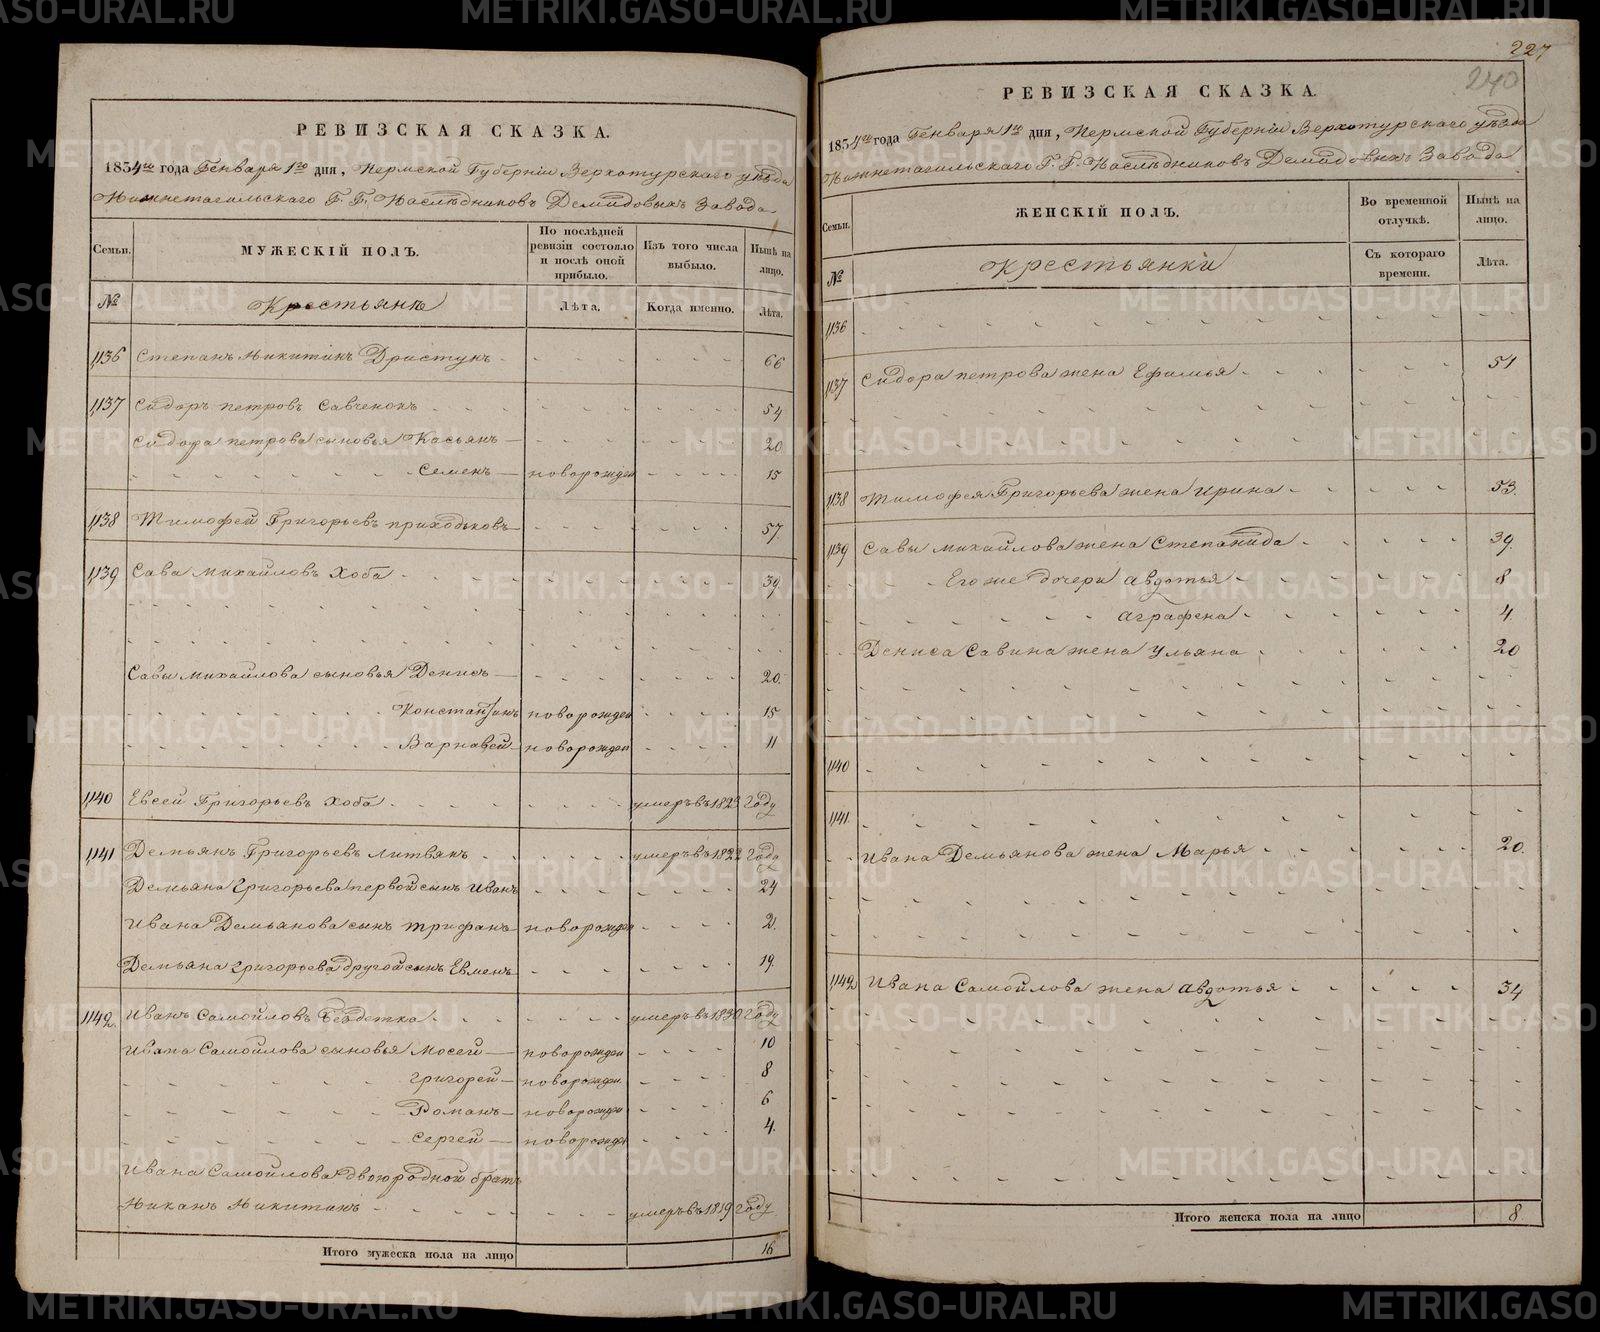 РЕВИЗСКАЯ СКАЗКА.
1834го года Генваря 1го дня, Пермской Губерніи Верхотурскаго уѣзда
Нижнетагильскаго Г. Г. Наслѣдниковъ Демидовыхъ Завода
Семьи.
МУЖЕСКІЙ ПОЛЪ.
По послѣдней ревизіи состояло и послѣ оной прибыло.
Изъ того числа выбыло.
Нынѣ на лицо.
№
Крестьянѣ
Лѣта.
Когда именно.
Лѣта.
1136 Степанъ Никитинъ Дристунъ 66
1137 Сидоръ Петровъ Савченокъ 54
Сидора Петрова сыновья Касьянъ 20
Семенъ новорожден 15
1138 Тимофей Григорьевъ Приходьковъ 57
1139 Сава Михайловъ Хоба 39
Савы Михайлова сыновья Денисъ 20
Константинъ новорожден 15
Варнавей новорожден 11
1140 Евсей Григорьевъ Хоба умеръ въ 1823 году
1141 Демьянъ Григорьевъ Литвякъ умеръ въ 1822 году
Демьяна Григорьева первой сынъ Иванъ 24
Ивана Демьянова сынъ Трифанъ новорожден 2
Демьяна Григорьева другой сынъ Евменъ 19
1142 Иванъ Самойловъ Бездетка умеръ въ 1830 году
Ивана Самойлова сыновья Мосей новорожден 10
Григорей новорожден 8
Романъ новорожден 6
Сергей новорожден 4
Ивана Самойлова двоюродной братъ
Никанъ Никитинъ умеръ въ 1819 году
Итого мужеска пола на лицо 16
227
240
РЕВИЗСКАЯ СКАЗКА.
1834го года Генваря 1го дня, Пермской Губерніи Верхотурскаго уѣзда
Нижнетагильскаго Г. Г. Наслѣдниковъ Демидовыхъ Завода
Семьи.
ЖЕНСКІЙ ПОЛЪ.
Во временной отлучкѣ.
Нынѣ на лицо.
№
Крестьянки
Съ котораго времени.
Лѣта.
1136
1137 Сидора Петрова жена Ефимья 51
1138 Тимофея Григорьева жена Ирина 53
1139 Савы Михайлова жена Степанида 39
Его же дочери Авдотья 8
Аграфена 4
Дениса Савина жена Ульяна 20
1140
1141
Ивана Демьянова жена Марья 20
1142 Ивана Самойлова жена Авдотья 34
Итого женска пола на лицо 8
METRIKI.GASO-URAL.RU